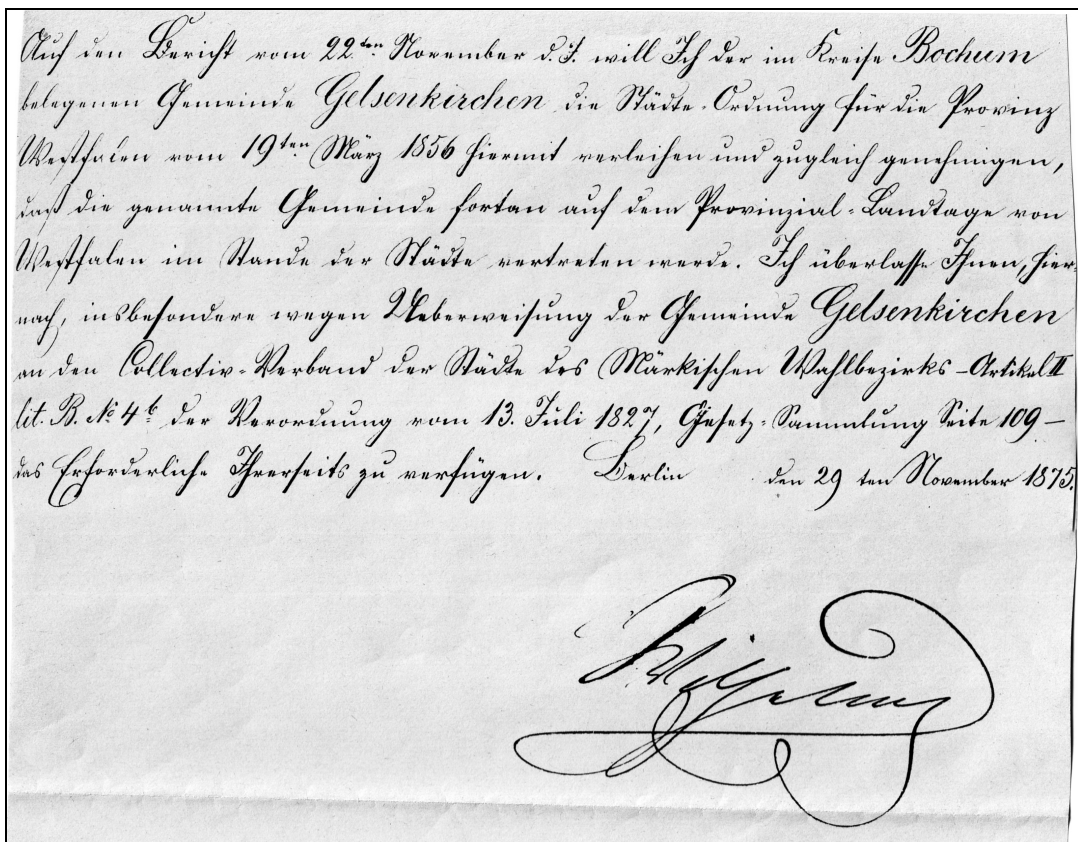 Auf den Bericht vom 22ten November d. J. will Ich der im Kreise Bochum
belegenen Gemeinde Gelsenkirchen die Städte-Ordnung für die Provinz
Westfalen vom 19ten März 1856 hiermit verleihen und zugleich genehmigen,
daß die genannte Gemeinde fortan auf dem Provinzial-Landtage von
Westfalen im Stande der Städte vertreten werde. Ich überlasse Ihnen, hier-
nach, insbesondere wegen Ueberweisung der Gemeinde Gelsenkirchen
an den Collectiv-Verband der Städte des Märkischen Wahlbezirks – Artikel II
lit. B. No 4b der Verordnung vom 13. Juli 1827, Gesetz-Sammlung Seite 109 –
das Erforderliche Ihrerseits zu verfügen. Berlin den 29 ten November 1875.
Wilhelm